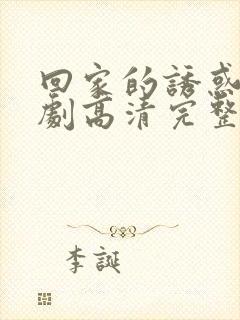 回家的誘惑
劇高清完整
李誕